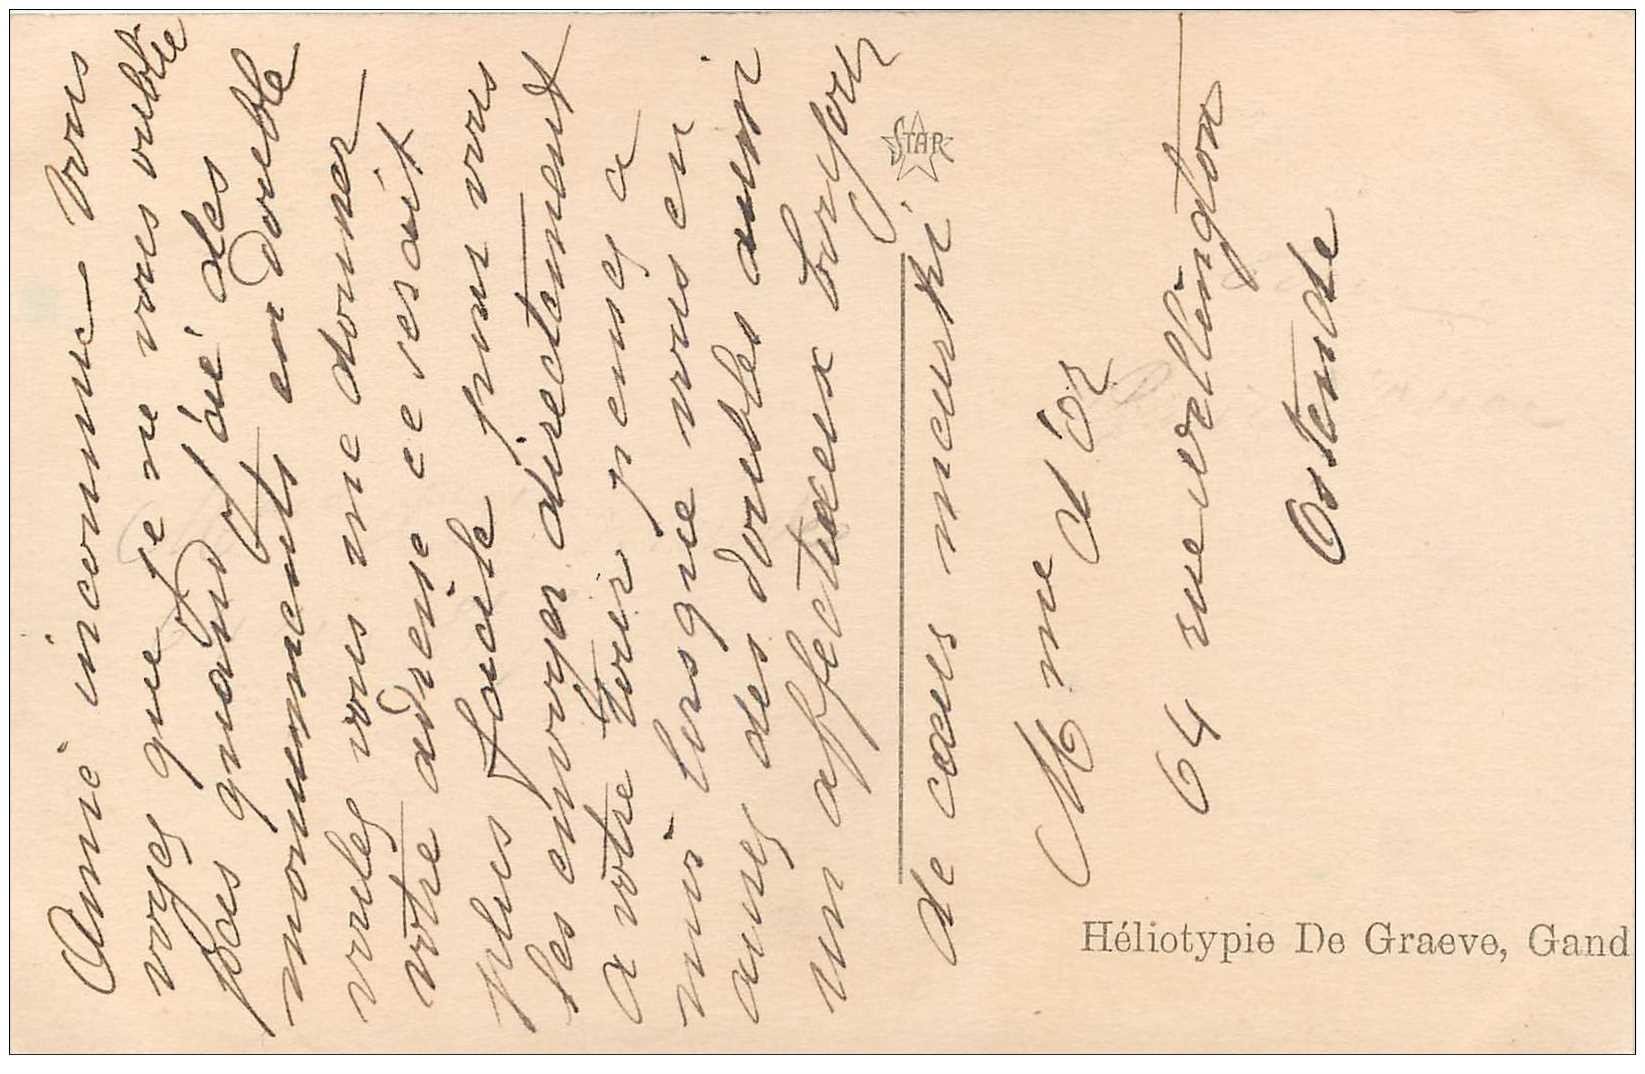 Amie inconnue Vous
voyez que je ne vous oublie
pas quand j'ai des
monuments en double
voulez vous me donner
votre adresse ce serait
plus facile pour vous
les envoyer directement
a votre tour pensez a
moi lorsque vous en
aurez des doubles aussi
un affectueux bonjour
de cœurs meurtri
Mme d'Or
64 rue Wellington
Ostende
STAR
Héliotypie De Graeve, Gand